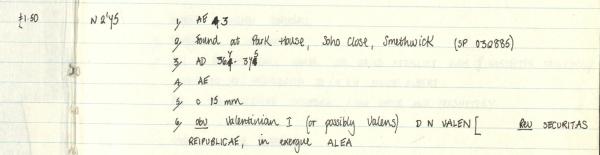 £1.50 N2'45 1, AE 3
2, Found at Park House, Soho Close, Smethwick (SP 030885)
3, AD 364-375
4, AE
5, 0 15 mm
6, obv Valentinian I (or possibly Valens) D N VALEN[ Rev SECURITAS
REIPUBLICAE, in exergue ALEA